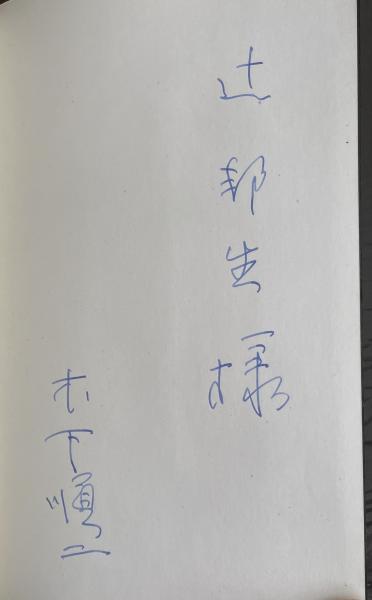 辻邦生様
木下順二